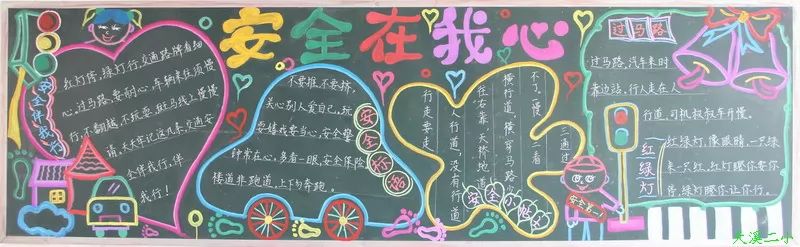 安全在我心
安全伴我行
红灯停,绿灯行,交通路牌看细
心。过马路,要耐心,车辆来往须慢
行,不翻越,不玩耍,斑马线上慢慢
请,天天牢记这几条,交通安
全伴我行,伴
我行!
不要推,不要挤,
关心别人爱自己,玩
耍嬉戏要当心,安全警
钟常在心,多看一眼,安全保险
楼道非跑道,上下勿奔跑。
安全标志
不了,一慢
二看
三通过
横行道,横穿马路
往右靠,天桥地道
人行道,没有行道
行走要走
安全小
过马路
过马路,汽车来时
靠边站,行人走在人
行道,司机叔叔车开慢。
红绿灯
红绿灯,像眼睛,一只绿
来一只红,红灯瞪你要你
停,绿灯瞪你让你行。
安全第一
大溪二小